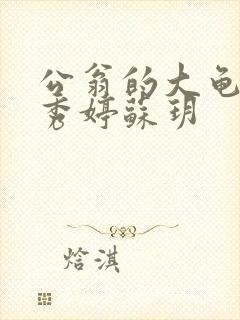 公翁的大龟
秀婷蘇玥
焓淇